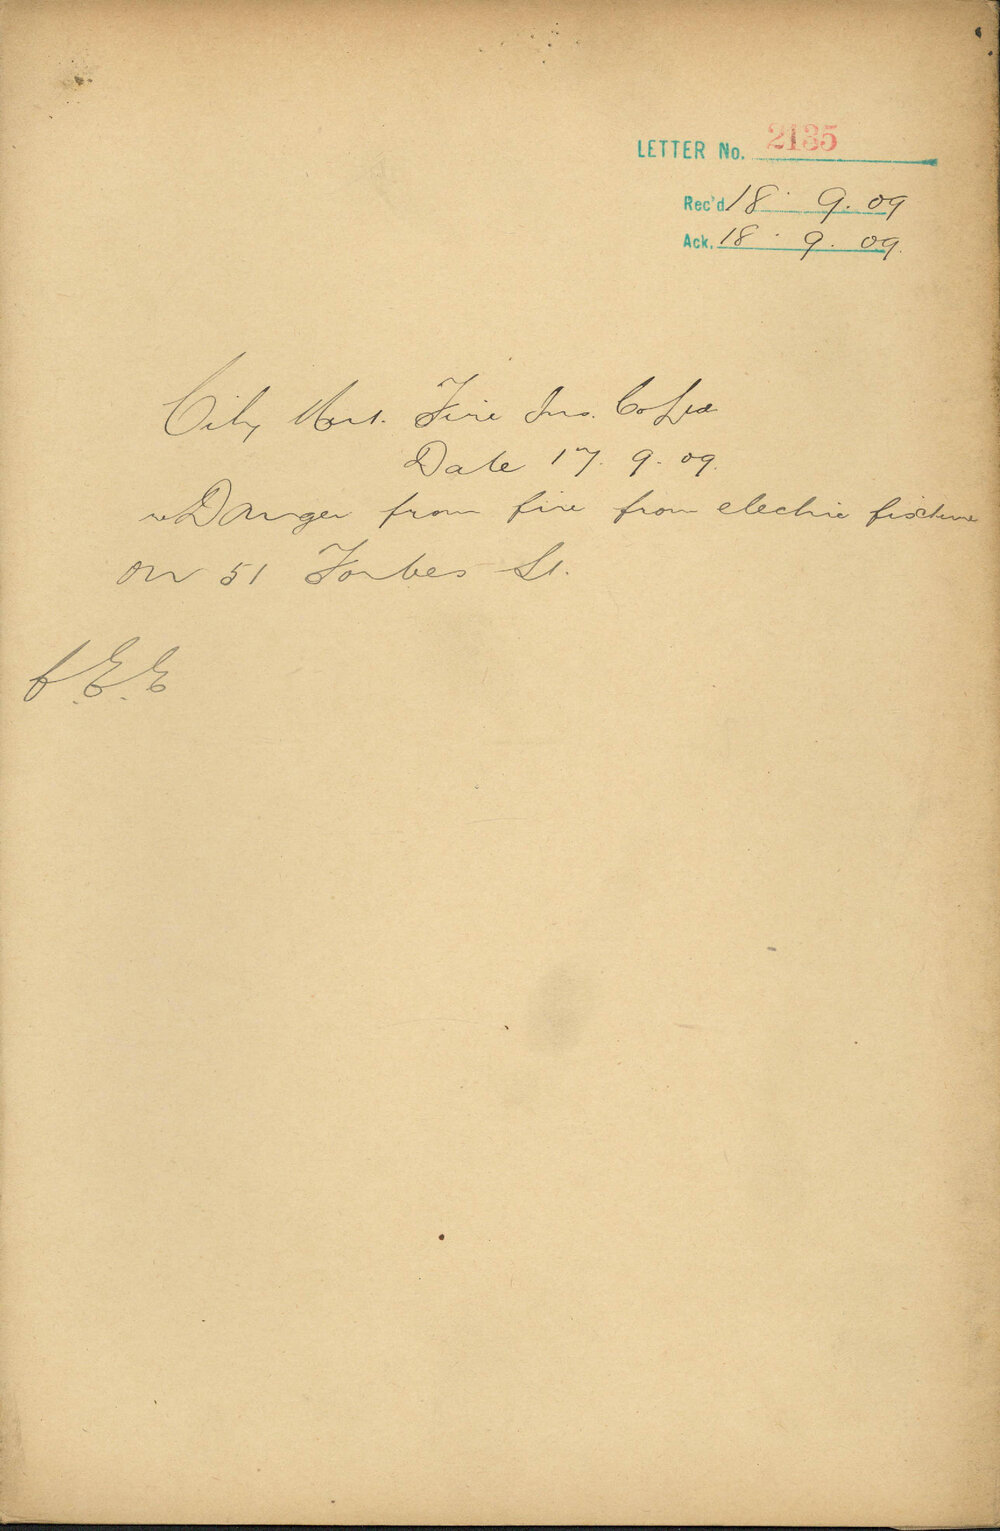 LETTER No. 2135
Rec'd 18. 9. 09
Ack. 18. 9. 09.
City Mut. Fire Ins. Co Ltd
Date 17. 9. 09.
re Danger from fire from electric fixture
on 51 Forbes St.
C.E.E